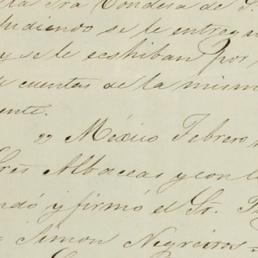 la Sra Condesa de S.
pudiendo se le entreg
y se le escriban por
de cuentas de la mism
ente.
" México Febrero
Sres Albaceas y con l
ndó y firmó el Sr.
= Simon Negreiros =